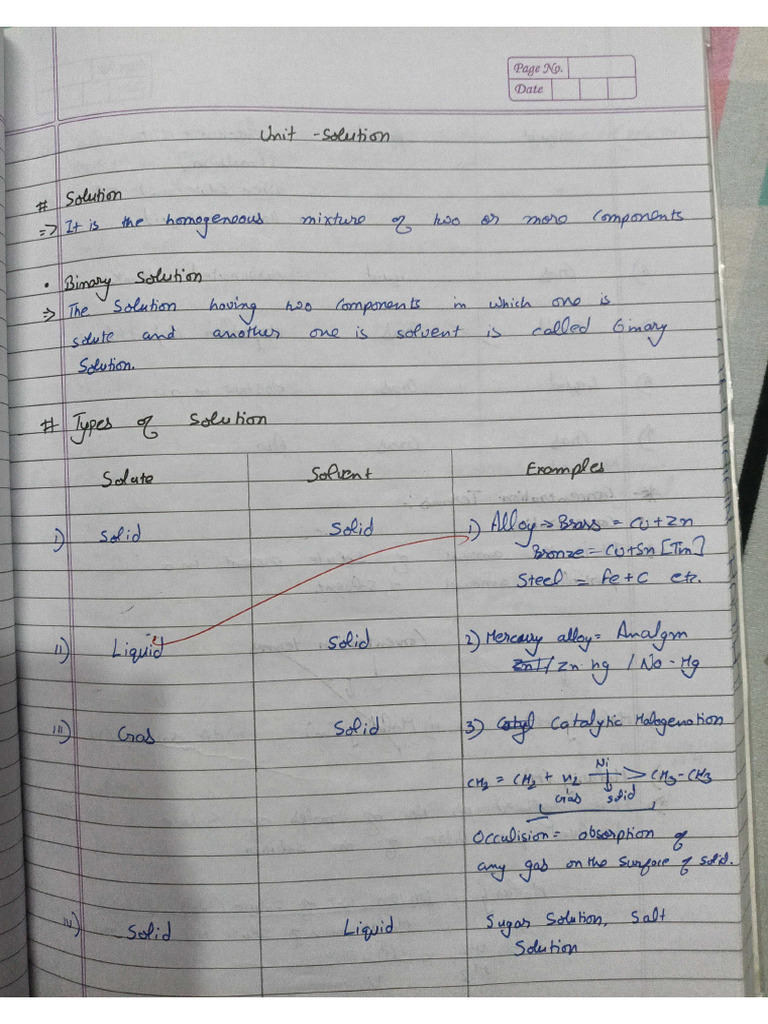 Page No.
Date
Unit - Solution
# Solution
=> It is the homogeneous mixture of two or more components
• Binary Solution
=> The Solution having two components in which one is
solute and another one is solvent is called binary
Solution.
# Types of Solution
Solute Solvent Examples
i) Solid Solid 1) Alloy => Brass = Cu+Zn
Bronze = Cu+Sn [Tin]
Steel = Fe+C etc.
ii) Liquid Solid 2) Mercury alloy = Analgm
/Zn Hg / Na-Hg
iii) Gas Solid 3) Catalytic Halogenation
CH2 = CH2 + H2 Ni > CH3-CH3
Gas Solid
Occulision = absorption of
any gas on the surface of solid.
iv) Solid Liquid Sugar Solution, Salt
Solution